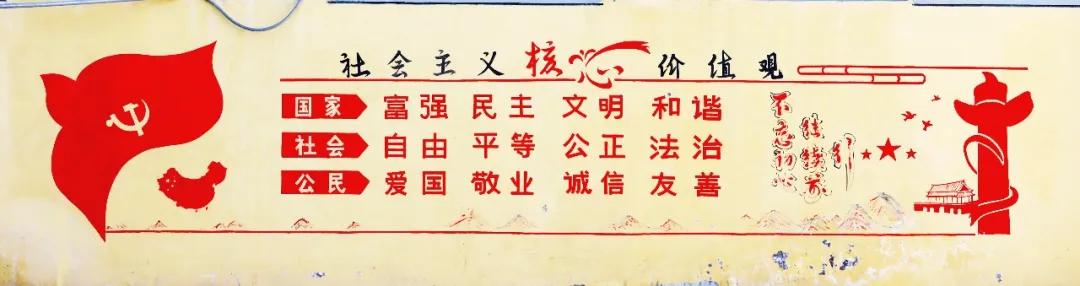 社会主义核心价值观
国家 富强 民主 文明 和谐
社会 自由 平等 公正 法治
公民 爱国 敬业 诚信 友善
不忘初心
继续前行